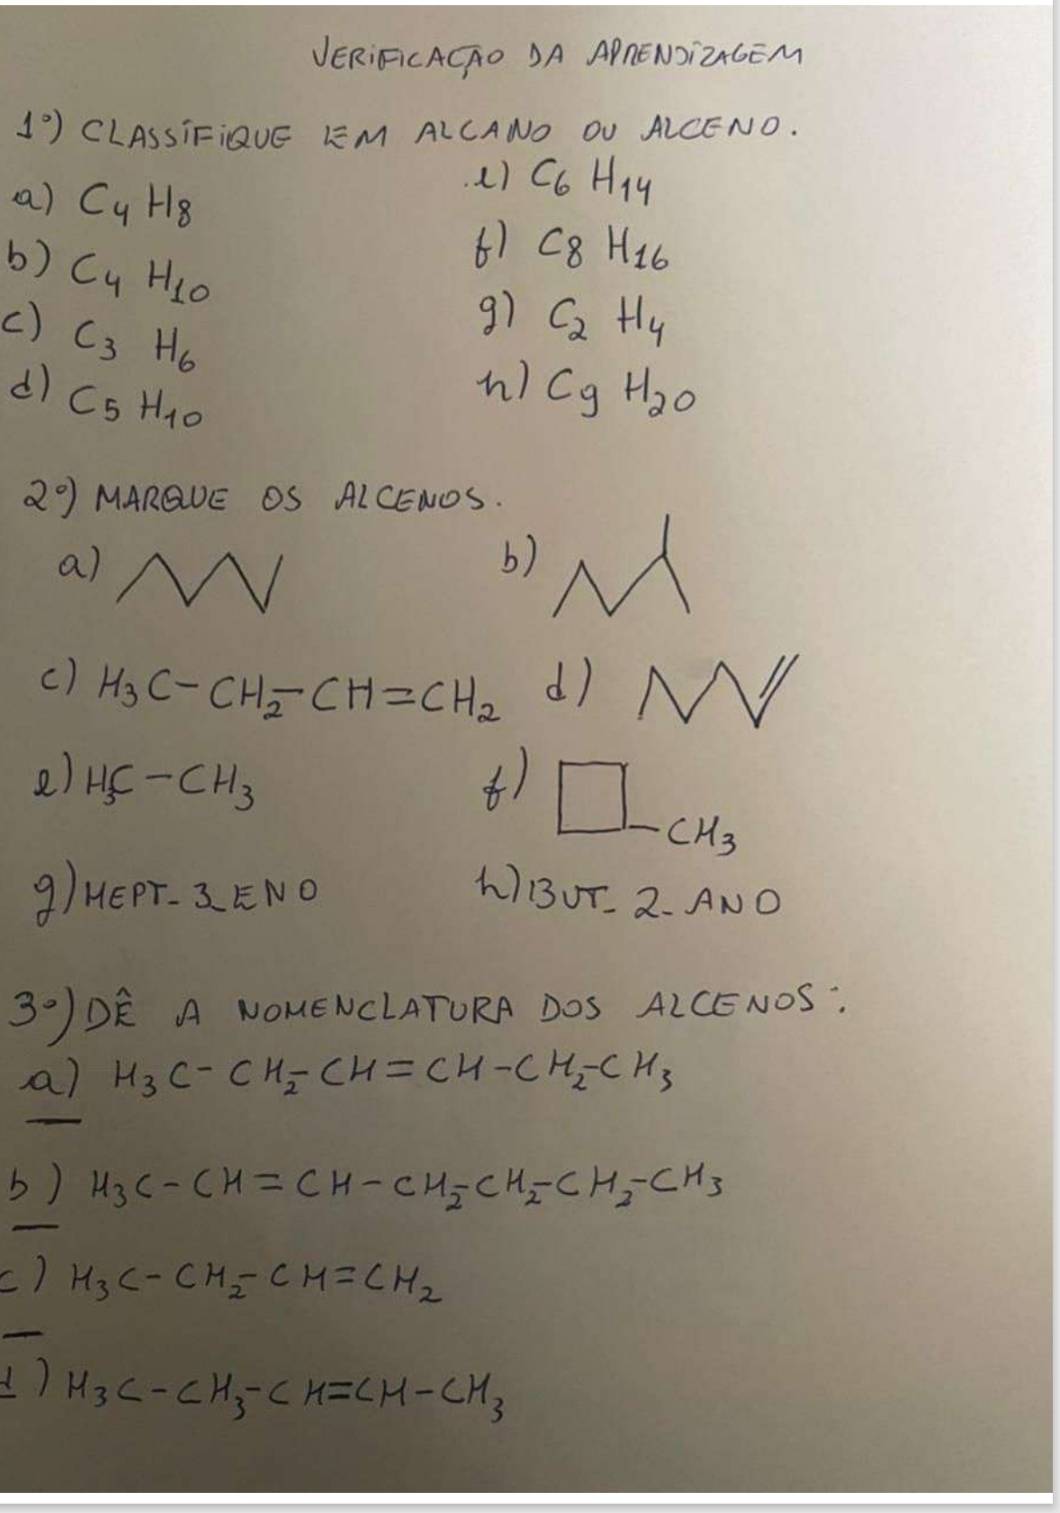 VERIFICAÇÃO DA APRENDIZAGEM
1º) CLASSIFIQUE EM ALCANO OU ALCENO.
a) C4 H8
e) C6 H14
b) C4 H10
f) C8 H16
c) C3 H6
g) C2 H4
d) C5 H10
h) C9 H20
2º) MARQUE OS ALCENOS.
a)
b)
c) H3C-CH2-CH=CH2
d)
e) H3C-CH3
f) -CH3
g) HEPT-3-ENO
h) BUT-2-ANO
3º) DÊ A NOMENCLATURA DOS ALCENOS:
a) H3C-CH2-CH=CH-CH2-CH3
b) H3C-CH=CH-CH2-CH2-CH2-CH3
c) H3C-CH2-CH=CH2
d) H3C-CH3-CH=CH-CH3